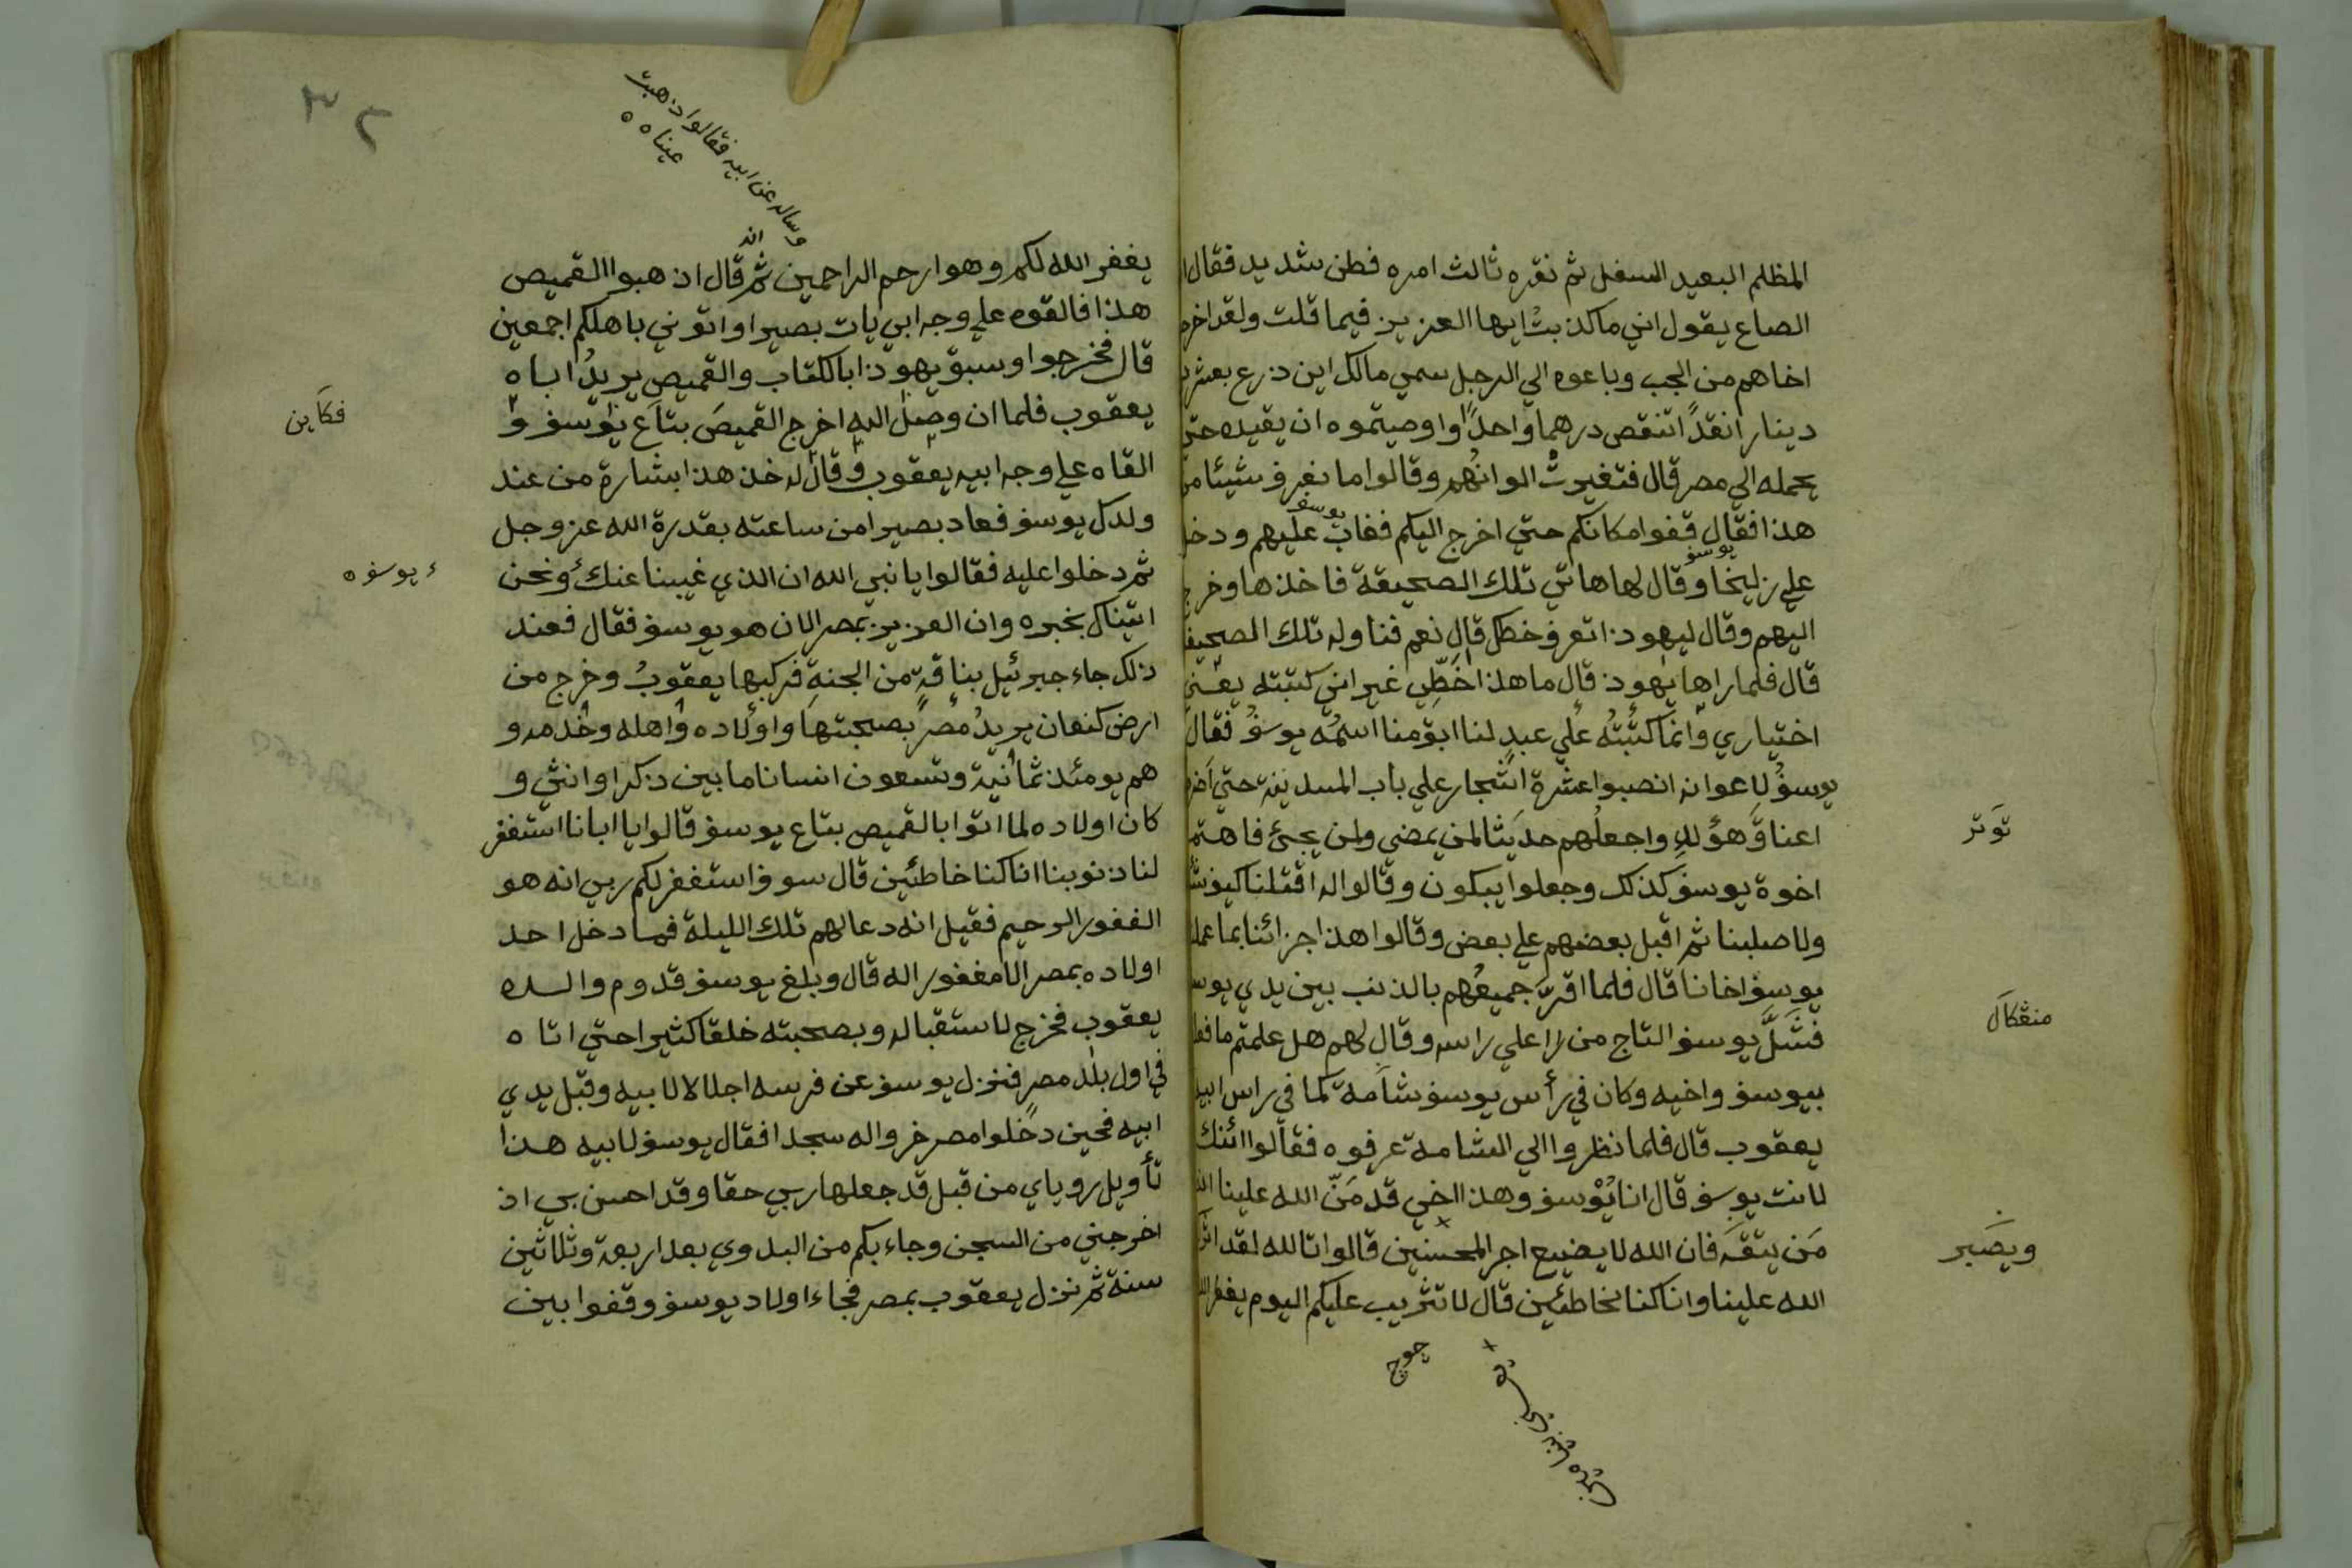 المظلم البعيد السفل ثم نقره ثالث امره فطن شديد فقال
الصاع يقول اني ما كذبت ايها العزيز فيما قلت ولقد
اخاهم من الجب وباعوه الي الرجل سمي مالك ابن ذرع
دينارا نقدًا اتنقص درهما واحدًا واوصيتموه ان يقيده حتي
يحمله الي مصر قال فتغيرتْ الوانُهم وقالوا ما نعرف شيئا من
هذا فقال قفوا مكانكم حتي اخرج اليكم فغاب يوسف عليهم ودخل
علي زليخا يوسف وقال لها هاتي تلك الصحيفة فاخذها وخرج
اليهم وقال ليهوذا تعرف خطك قال نعم فناوله تلك الصحيفة
قال فلما راها يهوذ قال ما هذا خَطِّي غير اني كتبته يعني
اختياري وانما كتبتُه علي عبدٍ لنا ابق منا اسمُه يوسفُ فقال
يوسفُ لاعوانه انصبوا عشرة اشجار علي باب المدينة حتي
اعناقَ هؤلاء واجعلُهم حديثا لمن يمضي ولمن يجئ فاهتم
توتر
اخوة يوسف كذلك وجعلوا يبكون وقالوا له اقتلنا كيف
ولا صلبنا ثم اقبل بعضهم علي بعض وقالوا هذا جزائنا بما
يوسف اخانا قال فلما اقرّ جميعُهم بالذنب بين يدي
منڠكال
فشَلَّ يوسف التاج من علي راسه وقال لهم هل علمتم ما
بيوسف واخيه وكان في رأس يوسف شامة كما في راس ابيه
يعقوب قال فلما نظروا الي الشامة عرفوه فقالوا ائنك
لانت يوسف قال انا يُوْسف وهذا اخي قد مَنّ الله علينا
مَن يتقَ فان الله لا يضيع اجر المحسنين قالوا تالله لقد
ويصَبر
الله علينا وانا كنا لخاطئين قال لا تثريب عليكم اليوم يغفر
وساله عن ابيه فقالوا ذهبت
عيناه
يغفر الله لكم وهو ارحم الراحمين ثم قال اذهبوا القميص
هذا فالقوه علي وجه ابي يات بصيرا واتوني باهلكم اجمعين
قال فخرجوا وسبق يهوذا بالكتاب والقميص يريدُ اباه
يعقوب فلما ان وصل اليه اخرج القميصَ بتاع يوسف و
فكاين
القاه علي وجه ابيه يعقوب وقال له خذ هذا بشارة من عند
ولدك يوسف فعاد بصيرا من ساعته بقدرة الله عز وجل
ثم دخلوا عليه فقالوا يا نبي الله ان الذي غيبنا عنك ونحن
يوسف
اتيناك بخبره وان العزيز بمصر الان هو يوسف فقال فعند
ذلك جاء جبرئيل بناقة من الجنةِ فركبها يعقوبُ وخرج من
ارض كنعان يريدُ مصرَ بصحبتها واولاده واهله وخدمه و
هم يومئذ ثمانية وتسعون انسانا ما بين ذكرا وانثي و
كان اولاده لما اتوا بالقميص بتاع يوسف قالوا يا ابانا استغفر
لنا ذنوبنا انا كنا خاطئين قال سوف استغفر لكم ربي انه هو
الغفور الرحيم فقيل انه دعا لهم تلك الليلة فما دخل احد
اولاده بمصر الا مغفور اله قال وبلغ يوسف قدوم والده
يعقوب فخرج لاستقباله وبصحبته خلقا كثيرا حتي اتاه
في اول بلد مصر فنزل يوسف عن فرسه اجلالا لابيه وقبّل يدي
ابيه فحين دخلوا مصر خروا له سجدا فقال يوسف لابيه هذا
تأويل روياي من قبل قد جعلها ربي حقا وقد احسن بي اذ
اخرجني من السجن وجاء بكم من البدوي بعد اربعة وثلاثين
سنة ثم نزل يعقوب بمصر فجاء اولاد يوسف وقفوا بين